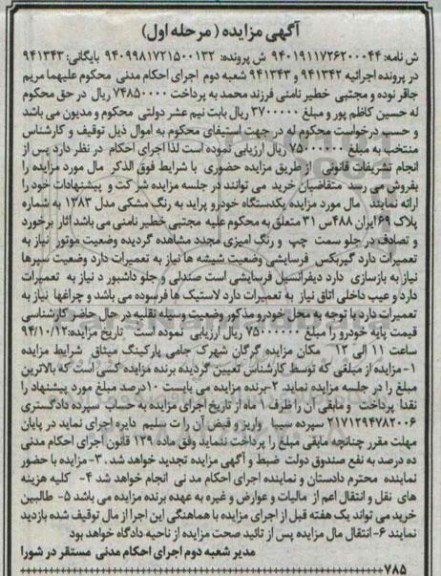 آگهی مزایده (مرحله اول)
ش نامه: ۹۴۰۱۹۱۱۷۲۶۲۰۰۰۴۴ ش پرونده: ۹۴۰۹۹۸۱۷۲۱۵۰۰۱۳۲ بایگانی: ۹۴۱۳۴۳
در پرونده اجرائیه ۹۴۱۳۴۲ و ۹۴۱۳۴۳ شعبه دوم اجرای احکام مدنی محکوم علیهما مریم
جاقر نوده و مجتبی خطیر نامنی فرزند محمد به پرداخت ۷۴۸۵۰۰۰۰ ریال در حق محکوم
له حسین کاظم پور و مبلغ ۳۷۰۰۰۰۰ ریال بابت نیم عشر دولتی محکوم و مدیون می باشد
و حسب درخواست محکوم له در جهت استیفای محکوم به اموال ذیل توقیف و کارشناس
منتخب به مبلغ ۷۵۰۰۰۰۰۰ ریال ارزیابی نموده است لذا اجرای احکام در نظر دارد پس از
انجام تشریفات قانونی از طریق مزایده حضوری با شرایط فوق الذکر مال مورد مزایده را
بفروش می رسد متقاضیان خرید می توانند در جلسه مزایده شرکت و پیشنهادات خود را
ارائه نمایند مال مورد مزایده یکدستگاه خودرو پراید به رنگ مشکی مدل ۱۳۸۳ به شماره
پلاک ۶۹ایران ۴۸۸س ۳۱ متعلق به محکوم علیه مجتبی خطیر نامنی می باشد آثار برخورد
و تصادف در جلو سمت چپ و رنگ آمیزی مجدد مشاهده گردیده وضعیت موتور نیاز به
تعمیرات دارد گیربکس فرسایشی وضعیت شیشه ها نیاز به تعمیرات دارد وضعیت سپرها
نیاز به بازسازی دارد دیفرانسیل فرسایشی است صندلی و جلو داشبورد نیاز به تعمیرات
دارد و عیب داخلی اتاق نیاز به تعمیرات دارد لاستیک ها فرسوده می باشد و چراغها نیاز به
تعمیرات دارد با توجه به محل خودرو مذکور وضعیت وسیله نقلیه در حال حاضر کارشناسی
قیمت پایه خودرو را مبلغ ۷۵۰۰۰۰۰۰ ریال ارزیابی نموده است تاریخ مزایده:۹۴/۱۰/۱۲
ساعت ۱۱ الی ۱۲ مکان مزایده گرگان شهرک جامی پارکینگ میثاق شرایط مزایده
۱-مزایده از مبلغی که توسط کارشناس تعیین گردیده برنده مزایده کسی است که بالاترین
مبلغ را در جلسه مزایده نماید. ۲-برنده مزایده می بایست ۱۰درصد مبلغ مورد پیشنهاد را
نقدا پرداخت و مابقی آن را ظرف ۱ ماه از تاریخ اجرای مزایده به حساب سپرده دادگستری
۲۱۷۱۲۹۴۷۸۲۰۰۶ سپرده سیبا واریز و فیض آن را ت سلیم دایره اجرای نماید در پایان
مهلت مقرر چنانچه مابقی مبلغ را پرداخت ننماید وفق ماده ۱۲۹ قانون اجرای احکام مدنی
ده درصد به نفع صندوق دولت ضبط و آگهی مزایده تجدید خواهد شد .۳- مزایده با حضور
نماینده محترم دادستان و نماینده اجرای احکام مد نی انجام خواهد شد ۴- کلیه هزینه
های نقل و انتقال اعم از مالیات و عوارض و غیره به عهده برنده مزایده می باشد ۵- طالبین
خرید می تواند یک هفته قبل از اجرای مزایده با هماهنگی این اجرا از مال توقیف شده بازدید
نمایند ۶-انتقال مال مزایده پس از تائید صحت مزایده از ناحیه دادگاه خواهد بود
مدیر شعبه دوم اجرای احکام مدنی مستقر در شورا
۷۸۵